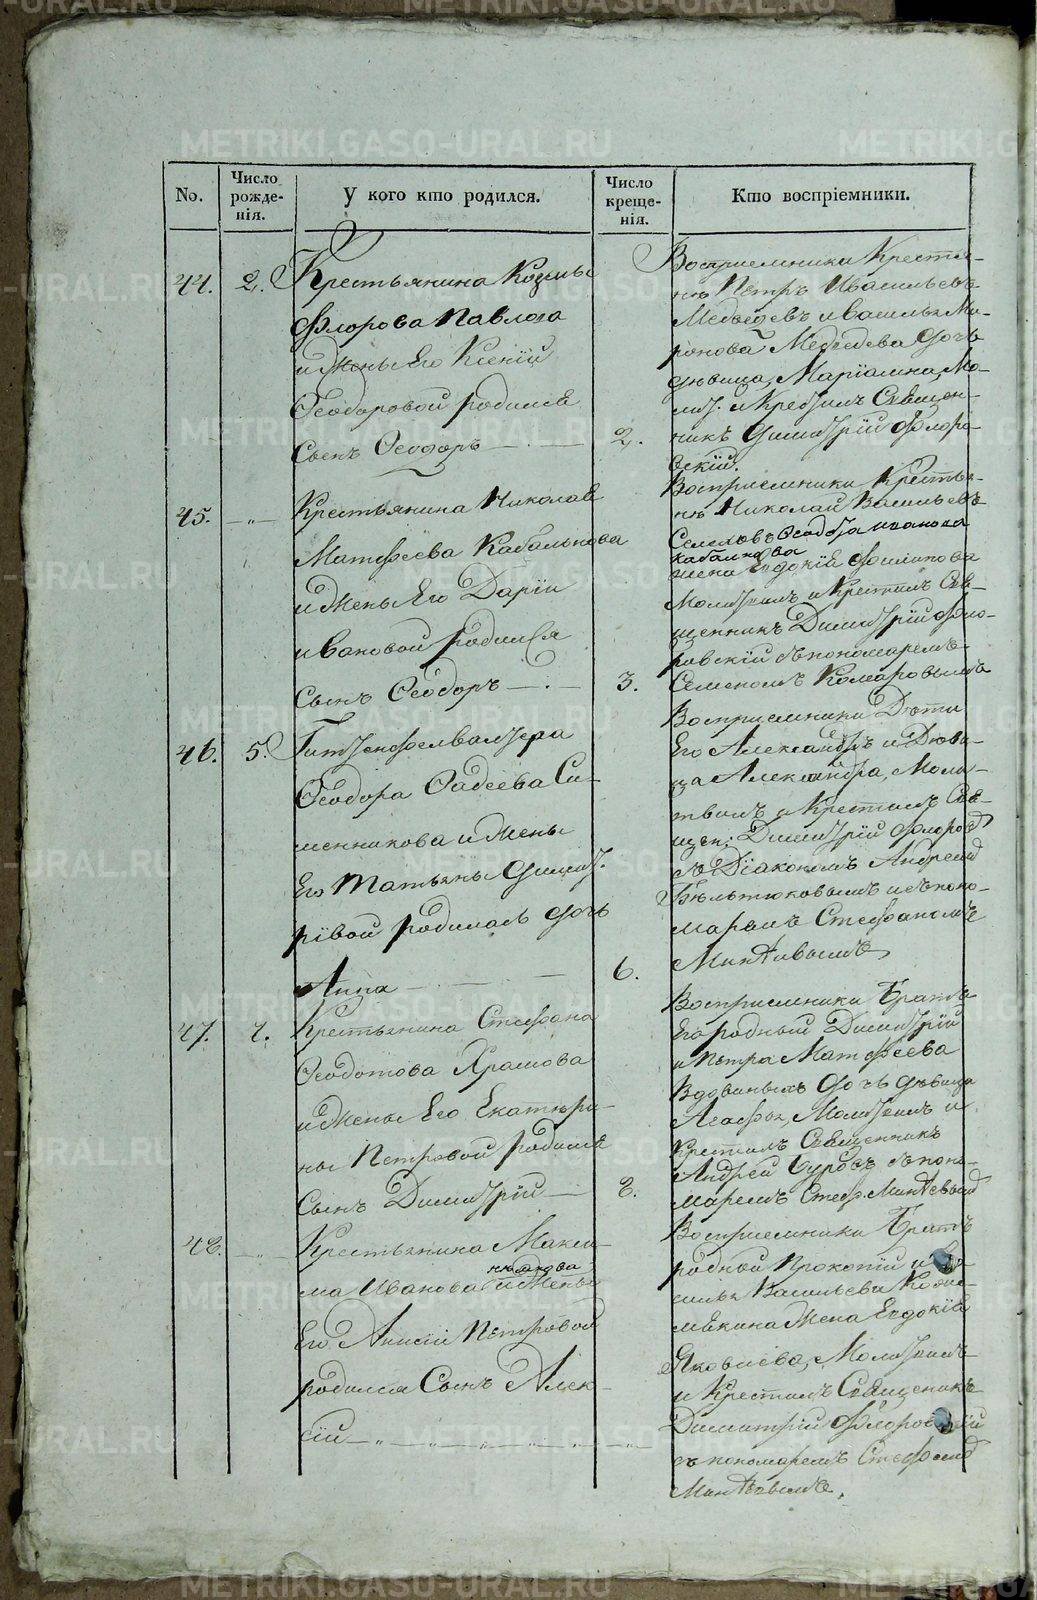 No.
Число рожде-нія.
У кого кто родился.
Число креще-нія.
Кто воспріемники.
44.
2.
Крестьянина Козмы
Флорова Павлова
и Жены Его Ксеніи
Ѳеодоровой родился
Сынъ Ѳеодоръ
2.
Восприемники Крестья-
нъ Петръ Ивасильевъ
Медведевъ и Василья Ми-
ронова Медведева дочь
девица, Маріамна, Мо-
лит. и Крестилъ Священ-
никъ Димитрій Флоро-
вскій.
45.
Крестьянина Николая
Матфеева Кабалнова
и Жены Его Даріи
Ивановой родился
Сынъ Ѳеодоръ
3.
Восприемники Крестья-
нъ Николай Васильевъ
Ѳеодора иванова
кабалнова
жена Евдокія Филипова
Молитвилъ и Крестилъ Свя-
щенникъ Димитрій Фло-
ровскій съ пономаремъ
Семеномъ Комаровымъ
46.
5.
Гиттенфервалтера
Ѳеодора Фадеева Са-
менникова и Жены
Его Татьяны Димит-
рівой родилась дочь
Анна
6.
Восприемники Дети
Его Александръ и Деви-
ца Александра, Моли-
твилъ и Крестилъ Свя-
щен: Димитрій Флоров
съ Діакономъ Андреемъ
Бельтюковымъ и съ поно-
маремъ Стефаномъ
47.
7.
Крестьянина Стефана
Ѳеодотова Храмова
и Жены Его Екатери-
ны Петровой родился
Сынъ Димитрій
8.
Восприемники Братъ
Его родный Димитрій
и Петра Матфеева
Вдовиныхъ дочь девица
Агафья, Молитвилъ и
Крестилъ Священникъ
Андрей Суровъ съ поно-
маремъ Стеф.
48.
Крестьянина Макси-
ма Иванова и Жены
Его Анисіи Петровой
родился Сынъ Алек-
сій
Восприемники Братъ
родной Прокопій и Ва-
силья Васильева Коже-
мякина Жена Евдокія
Яковлева, Молитвилъ
и Крестилъ Священикъ
Димитрій Флоровскій
съ пономаремъ Стефаномъ
METRIKI.GASO-URAL.RU